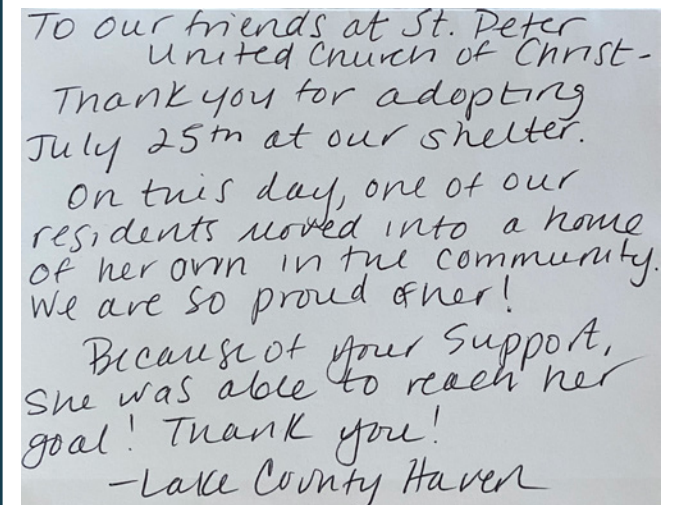 To our friends at St. Peter
United Church of Christ -
Thank you for adopting
July 25th at our shelter.
On this day, one of our
residents moved into a home
of her own in the community.
We are so proud of her!
Because of your support,
she was able to reach her
goal! Thank you!
-Lake County Haven